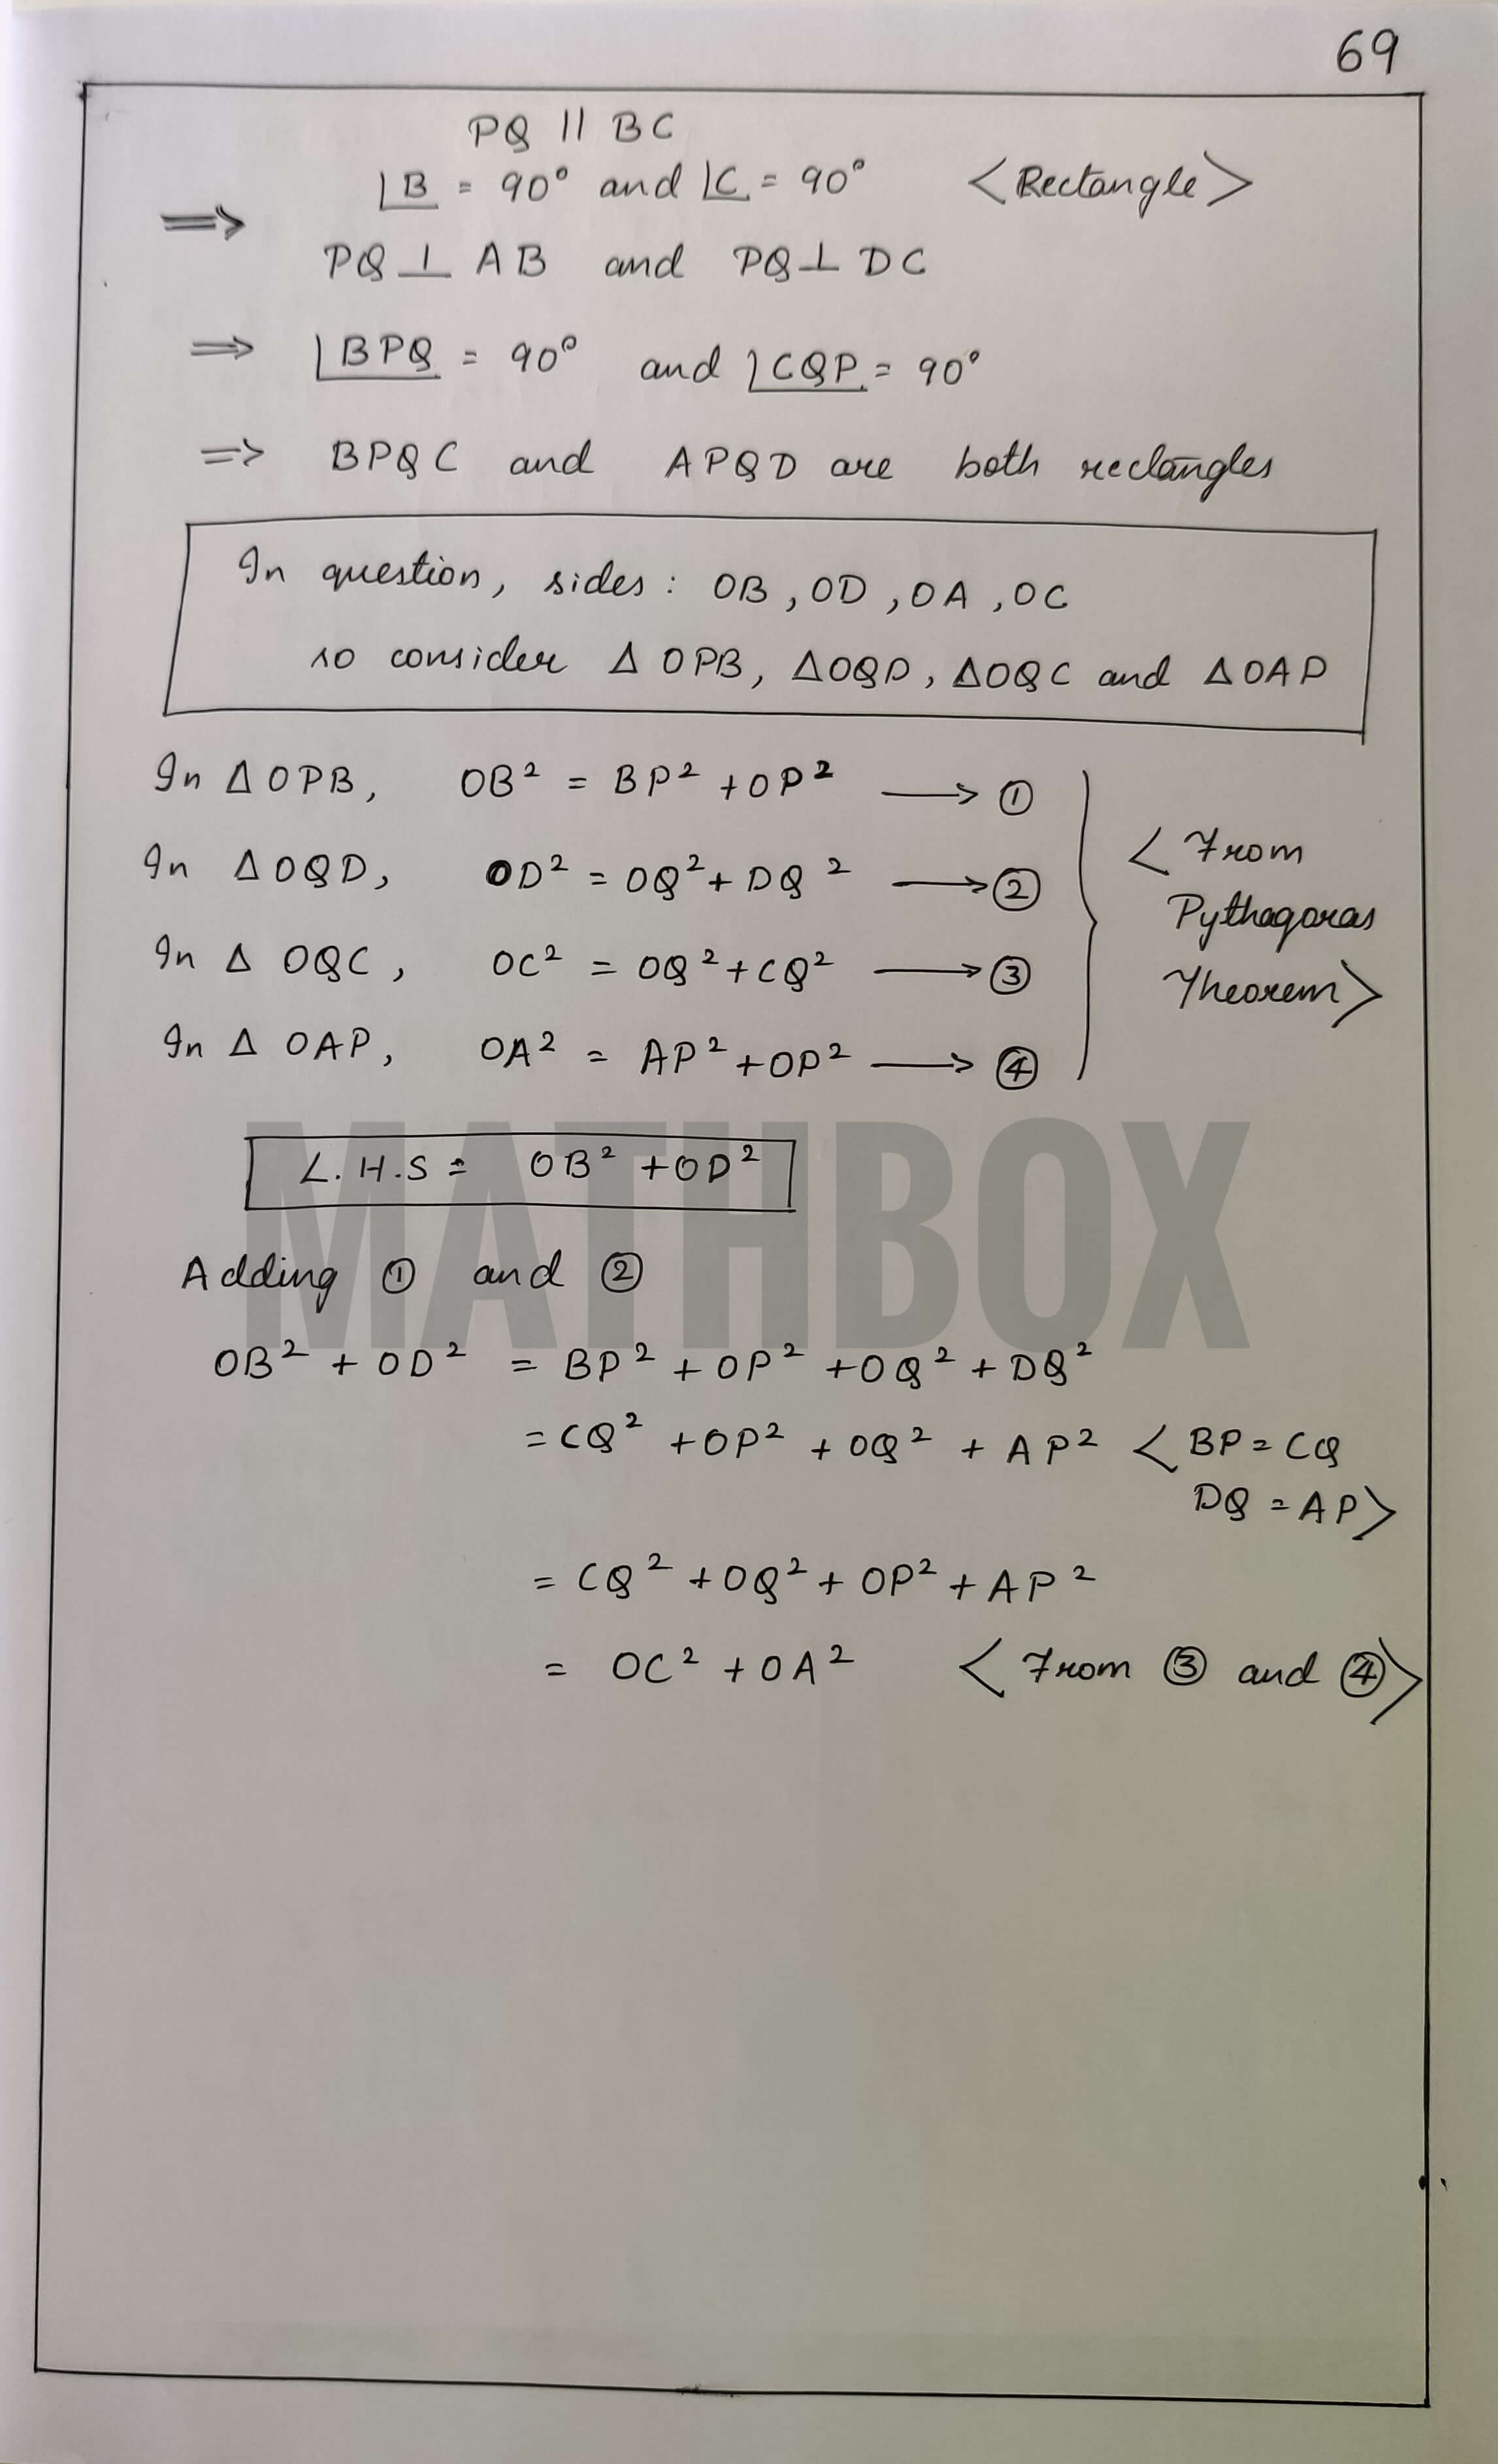 69
PQ || BC
∠B = 90° and ∠C = 90° <Rectangle>
⇒
PQ ⊥ AB and PQ ⊥ DC
⇒ ∠BPQ = 90° and ∠CQP = 90°
⇒ BPQC and APQD are both rectangles
In question, sides: OB, OD, OA, OC
so consider Δ OPB, ΔOQD, ΔOQC and ΔOAP
In Δ OPB, OB² = BP² + OP² → ①
In Δ OQD, OD² = OQ² + DQ² → ②
In Δ OQC, OC² = OQ² + CQ² → ③
In Δ OAP, OA² = AP² + OP² → ④
< From
Pythagoras
Theorem>
MATHBOX
L.H.S = OB² + OD²
Adding ① and ②
OB² + OD² = BP² + OP² + OQ² + DQ²
= CQ² + OP² + OQ² + AP² < BP = CQ
DQ = AP>
= CQ² + OQ² + OP² + AP²
= OC² + OA² < From ③ and ④>